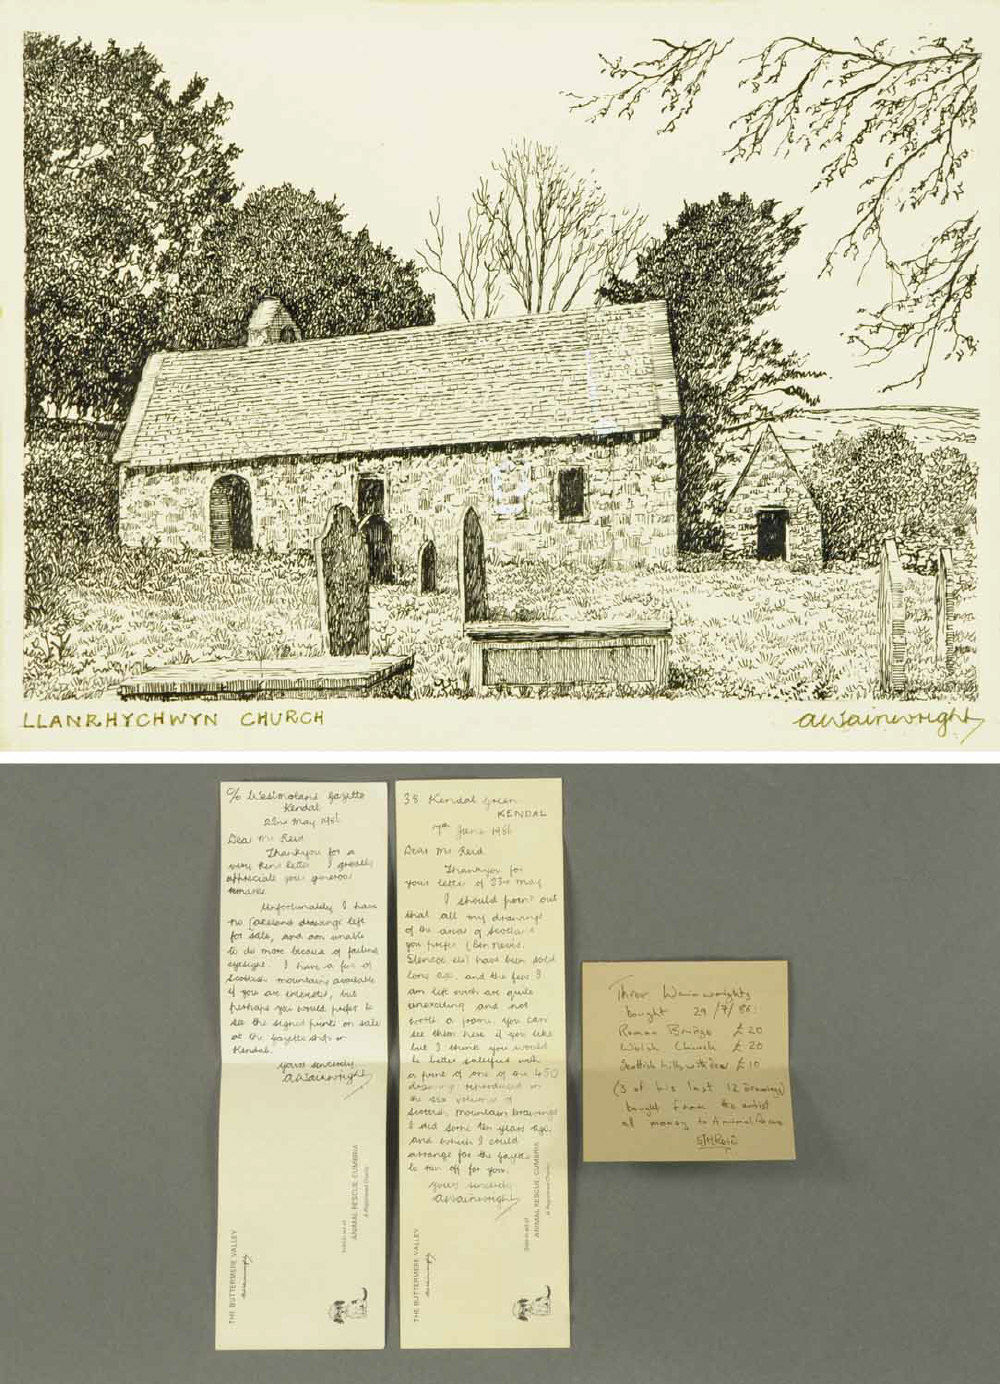 LLANRHYCHWYN CHURCH
AWainwright
c/o Westmorland Gazette
Kendal
22nd May 1986
Dear Mr Reid
Thankyou for a
very kind letter. I greatly
appreciate your generous
remarks.
Unfortunately I have
no Lakeland drawings left
for sale, and am unable
to do more because of failing
eyesight. I have a few of
Scottish mountains available
if you are interested, but
perhaps you would prefer to
see the signed prints on sale
at the Gazette shop in
Kendal.
Yours sincerely
AWainwright
THE BUTTERMERE VALLEY
AWainwright
Sold in aid of
ANIMAL RESCUE, CUMBRIA
A Registered Charity
38 Kendal Green
KENDAL
7th June 1986
Dear Mr Reid
Thankyou for
your letter of 23rd May.
I should point out
that all my drawings
of the area of Scotland
you prefer (Ben Nevis,
Glencoe etc) have been sold
long ago, and the few I
am left with are quite
unexciting and not
worth a frame. You can
see them here if you like
but I think you would
be better satisfied with
a print of one of the 450
drawings reproduced in
the six volumes of
Scottish Mountain Drawings
I did some ten years ago,
and which I could
arrange for the Gazette
to run off for you.
Yours sincerely
AWainwright
THE BUTTERMERE VALLEY
AWainwright
Sold in aid of
ANIMAL RESCUE, CUMBRIA
A Registered Charity
Three Wainwrights
bought 29/7/86:
Roman Bridge £20
Welsh Church £20
Scottish hills with £10
(3 of his last 12 drawings)
bought from the artist
all money to Animal Rescue